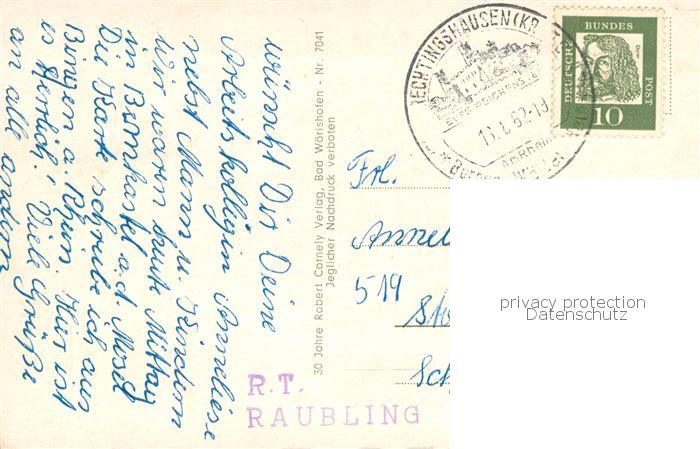 wünscht Dir Deine
Arbeitskollegin Anneliese
nebst Mann u. Kindern
Wir waren heute Mittag
in Bernkastel a. d. Mosel
Die Karte schreibe ich aus
Bingen a. Rhein. Hier ist
es herrlich! Viele Grüße
an alle andern
30 Jahre Robert Cornely Verlag, Bad Wörishofen - Nr. 7041
Jeglicher Nachdruck verboten
TRECHTINGSHAUSEN (KR
BURG REICHENSTEIN
62-19
Am Rhein
DEUTSCHE BUNDES POST
Dürer
10
Frl.
Annel
519
Sto
Sch
R.T.
RAUBLING
privacy protection
Datenschutz